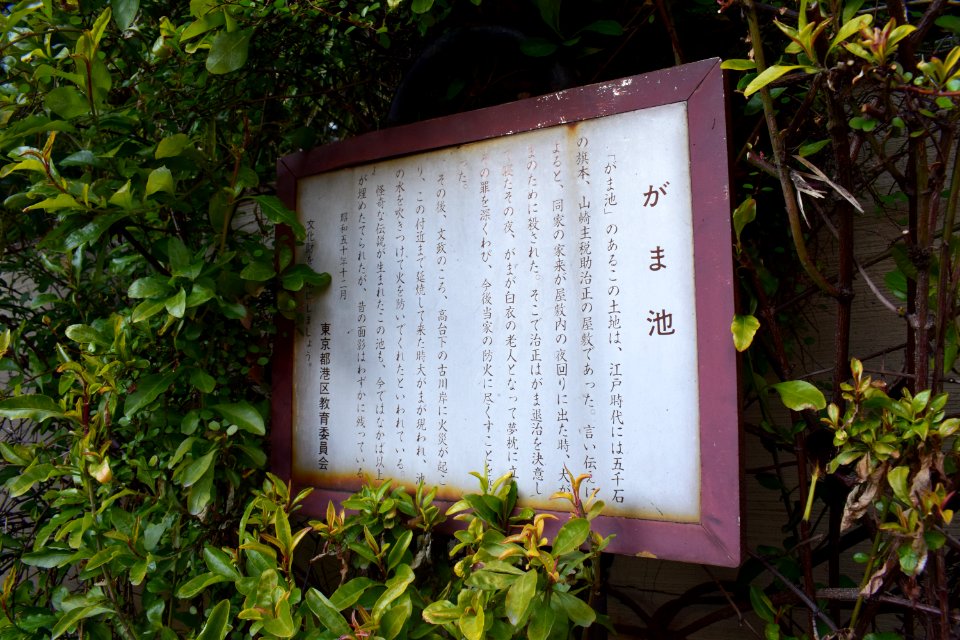 がま池
「がま池」のあるこの土地は、江戸時代には五千石
の旗本、山崎主税助治正の屋敷であった。言い伝えに
よると、同家の家来が屋敷内の夜回りに出た時、大が
まのために殺された。そこで治正はがま退治を決意し
寝たその夜、がまが白衣の老人となって夢枕に立
の罪を深くわび、今後当家の防火に尽くすことを
た。
その後、文政のころ、高台下の古川岸に火災が起こ
り、この付近まで延焼して来た時大がまが現われ、池
の水を吹きつけて火を防いでくれたといわれている。
怪奇な伝説が生まれたこの池も、今ではなかば以上
が埋めたてられたが、昔の面影はわずかに残っている
昭和五十年十二月
文化財を
しましょう。
東京都港区教育委員会